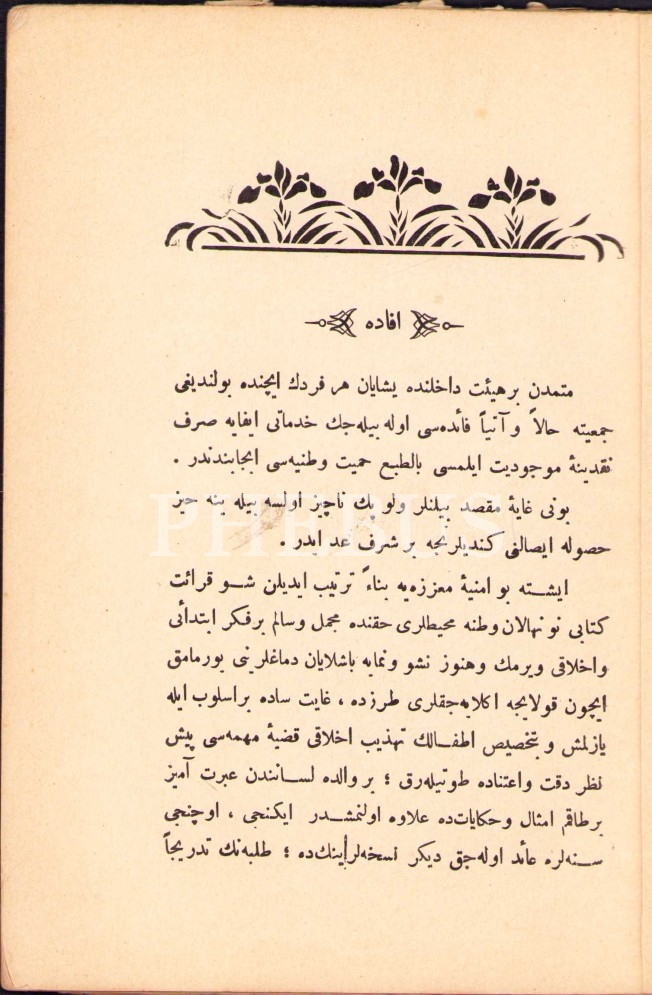 افاده
متمدن بر هيئت داخلنده يشايان هر فردك ايچنده بولنديغى
جمعيته حالاً و آتياً فائده‌سى اوله بيله‌جك خدماتى ايفايه صرف
نقدينهٔ موجوديت ايلمسى بالطبع حميت وطنيه‌سى ايجابندندر .
بونى غايهٔ مقصد بيلنلر ولو پك ناچيز اولسه بيله ينه حيز
حصوله ايصالنى كنديلرنجه بر شرف عد ايدر .
ايشــته بو امنيهٔ معززه‌يه بناءً ترتيب ايديلن شــو قرائت
كتابى نونهالان وطنه محيطلرى حقنده مجمل وسالم برفكر ابتدائى
واخلاقى ويرمك وهنوز نشو ونمايه باشلايان دماغلرينى يورمامق
ايچون قولايجه اكلايه‌جقلرى طرزده ، غايت ساده براسلوب ايله
يازلمش و بتخصيص اطفــالك تهذيب اخلاقى قضيهٔ مهمه‌سى پيش
نظر دقت واعتناده طوتيله‌رق ؛ بر والده لســانندن عبرت آميز
برطاقم امثال وحكايات‌ده علاوه اولنمشــدر ايكنجى ، اوچنجى
ســنه‌لره عائد اوله‌جق ديكر نسخه‌لرأينك‌ده ؛ طلبه‌نك تدريجاً
PHEBUS